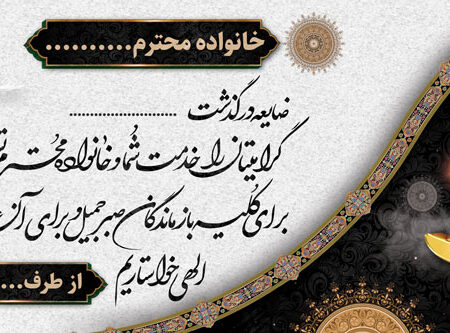 خانواده محترم..........
ضایعه درگذشت ..........................
گرامیتان را خدمت شما و خانواده محترم
برای کلیه بازماندگان صبر جمیل و برای آن
الهی خواستاریم
از طرف....